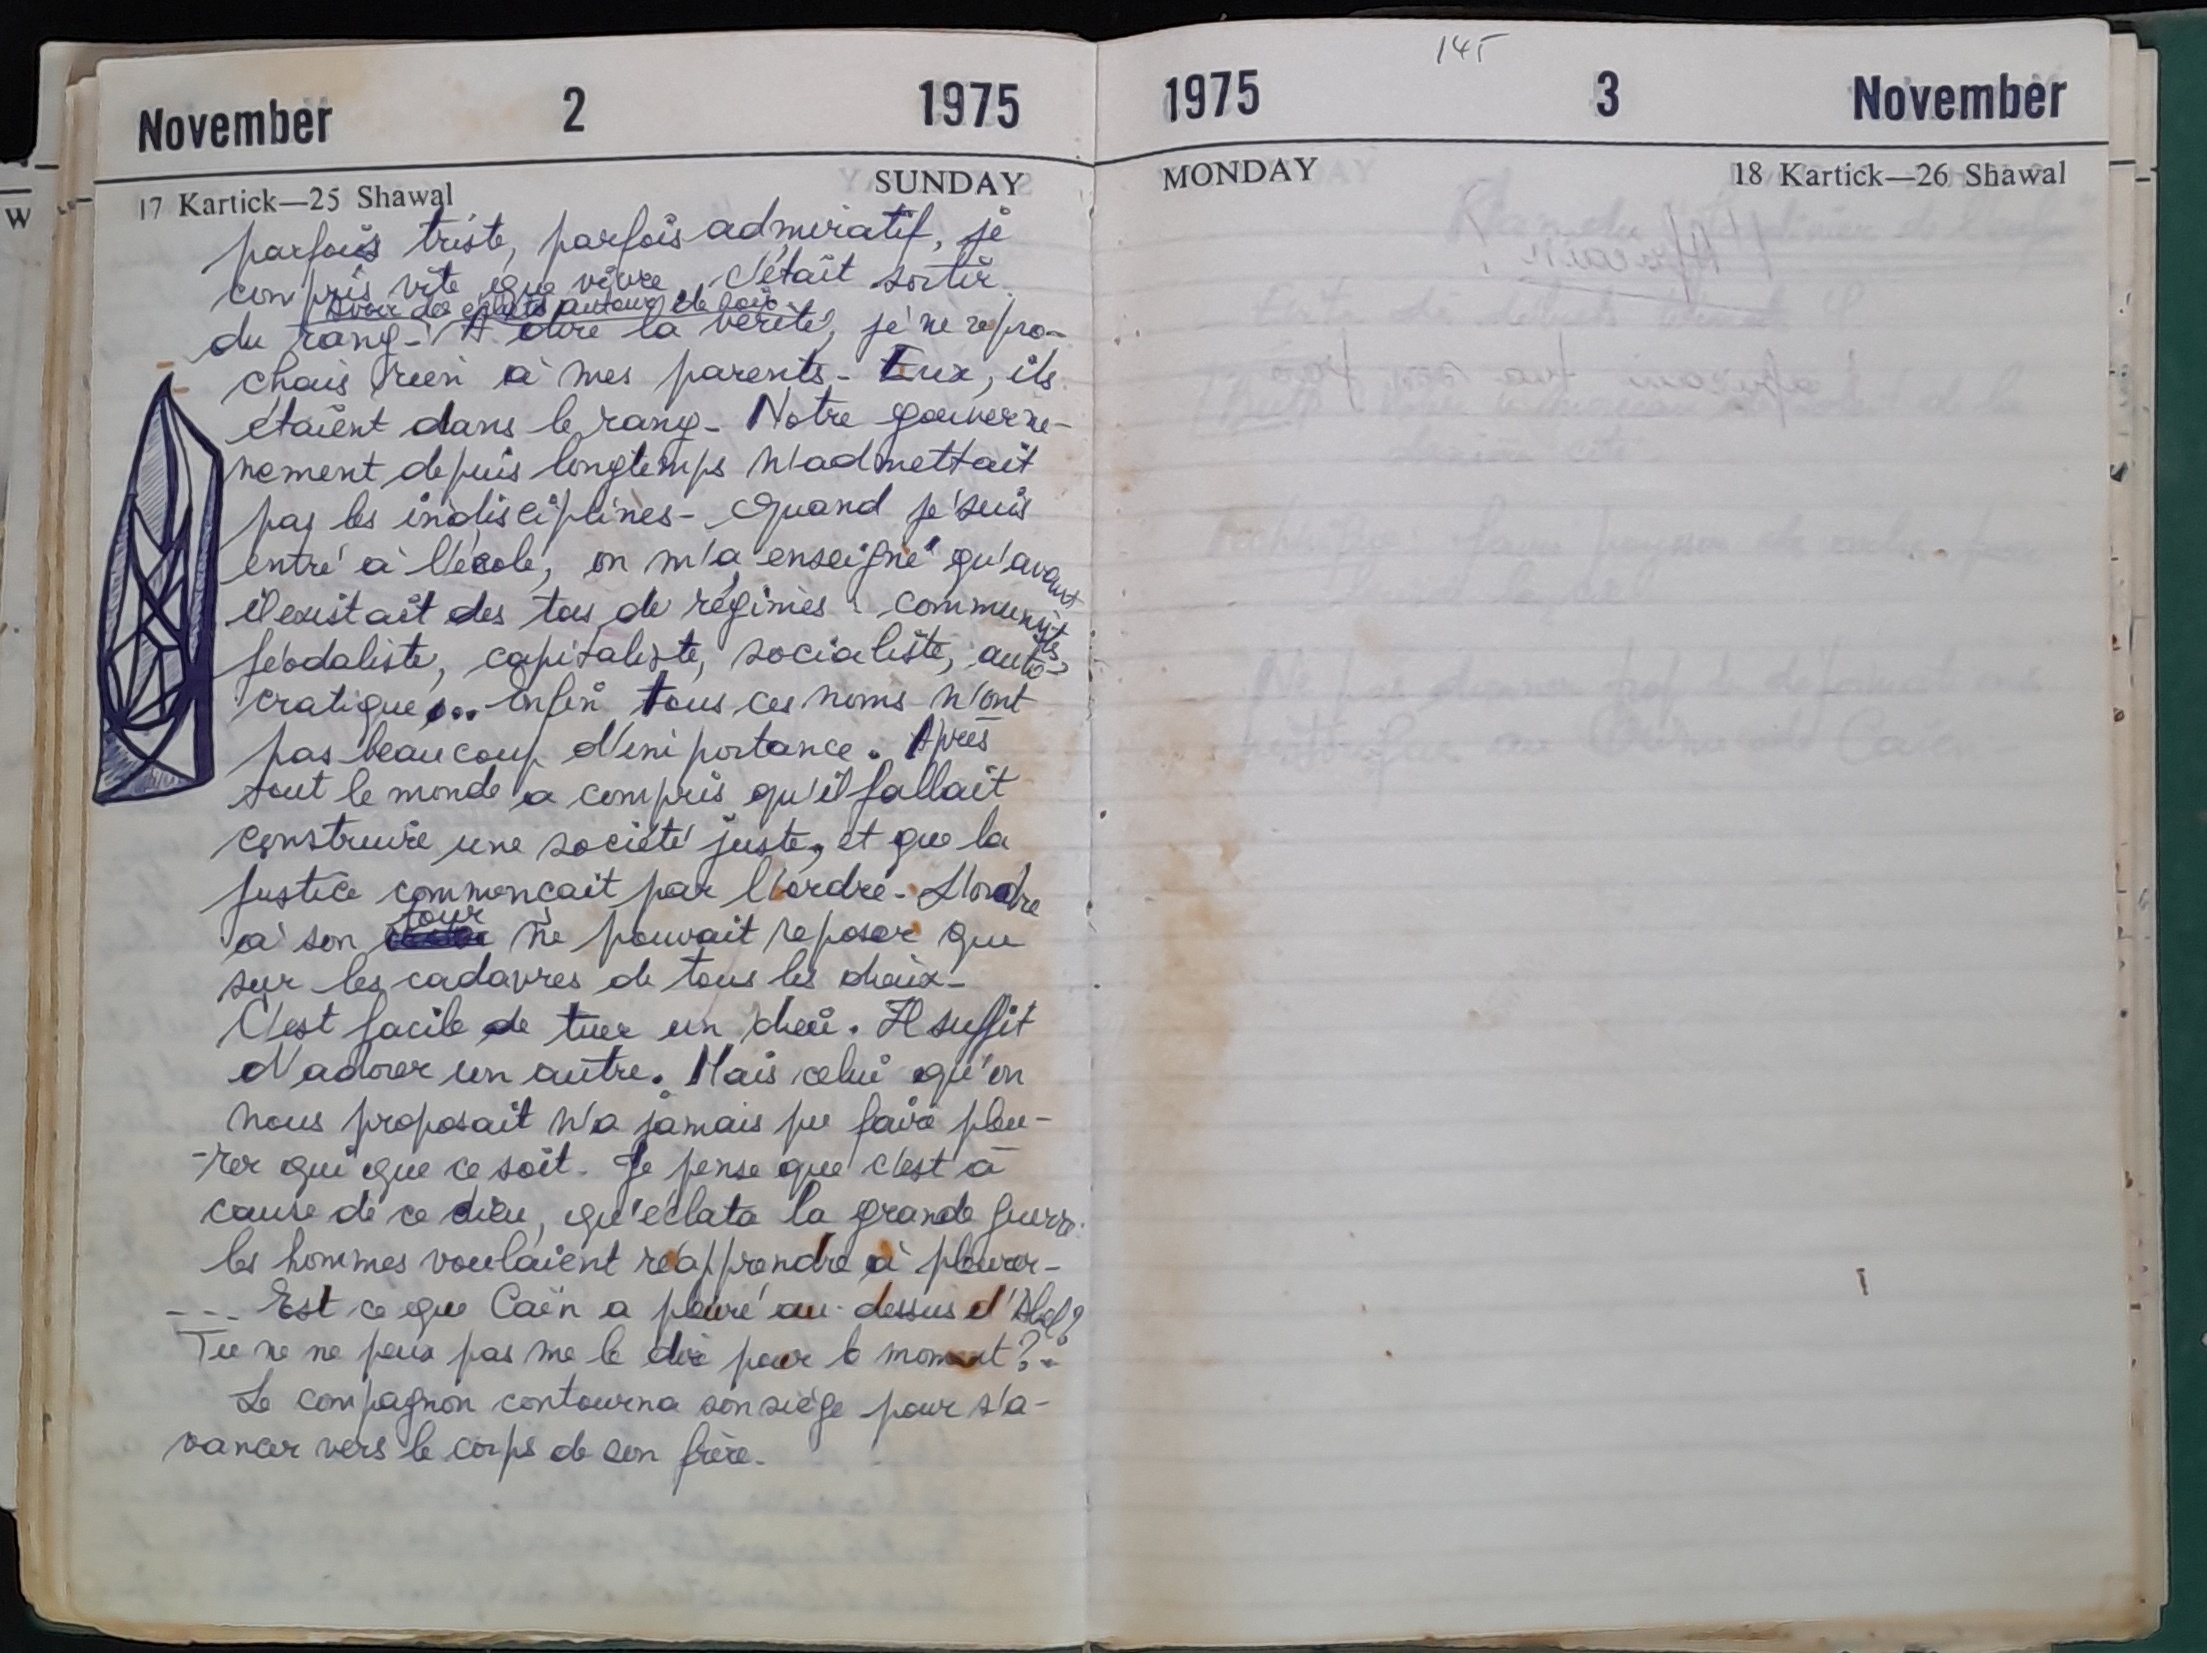 November 2 1975
17 Kartick—25 Shawal SUNDAY
parfois triste, parfois admiratif, je
compris vite que vivre, c'était sortir
du rang - A dire la vérité, je ne repro-
chais rien à mes parents - Eux, ils
étaient dans le rang - Notre gouverne-
nement depuis longtemps n'admettait
pas les indisciplines - Quand je suis
entré à l'école, on m'a enseigné qu'avant
il existait des tas de régimes : communiste
féodaliste, capitaliste, socialiste, auto-
cratique... enfin tous ces noms n'ont
pas beaucoup d'importance. Après
tout le monde a compris qu'il fallait
construire une société juste, et que la
justice commençait par l'ordre - L'ordre
à son tour ne pouvait reposer que
sur les cadavres de tous les dieux -
C'est facile de tuer un dieu. Il suffit
d'adorer un autre. Mais celui qu'on
nous proposait n'a jamais pu faire pleu-
-rer qui que ce soit - Je pense que c'est à
cause de ce dieu, qu'éclata la grande guerre.
les hommes voulaient réapprendre à pleurer -
--- Est ce que Caïn a pleuré au-dessus d'Abel?
Tu ne ne peux pas me le dire pour le moment? -
Le compagnon contourna son siège pour s'a-
vancer vers le corps de son frère.
145
1975 3 November
MONDAY 18 Kartick—26 Shawal